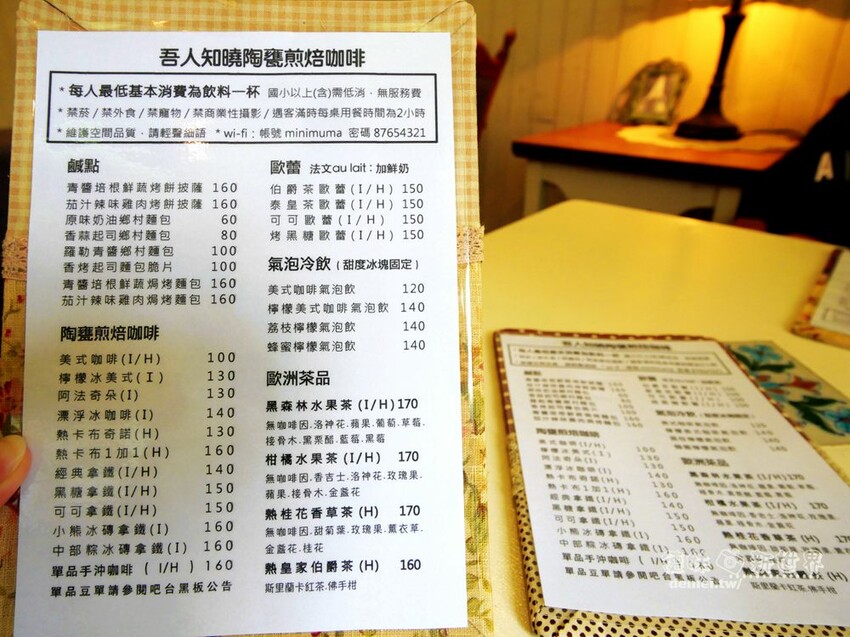 吾人知曉陶甕煎焙咖啡
* 每人最低基本消費為飲料一杯 國小以上(含)需低消，無服務費
* 禁菸 / 禁外食 / 禁寵物 / 禁商業性攝影 / 遇客滿時每桌用餐時間為2小時
* 維護空間品質，請輕聲細語 * wi-fi：帳號 minimuma 密碼 87654321
鹹點
青醬培根鮮蔬烤餅披薩 160
茄汁辣味雞肉烤餅披薩 160
原味奶油鄉村麵包 60
香蒜起司鄉村麵包 80
羅勒青醬鄉村麵包 100
香烤起司麵包脆片 100
青醬培根鮮蔬焗烤麵包 160
茄汁辣味雞肉焗烤麵包 160
陶甕煎焙咖啡
美式咖啡(I/H) 100
檸檬冰美式(I) 130
阿法奇朵(I) 130
漂浮冰咖啡(I) 140
熱卡布奇諾(H) 130
熱卡布1加1(H) 160
經典拿鐵(I/H) 140
黑糖拿鐵(I/H) 150
可可拿鐵(I/H) 150
小熊冰磚拿鐵(I) 160
中部粽冰磚拿鐵(I) 160
單品手沖咖啡 ( I/H ) 160
單品豆單請參閱吧台黑板公告
歐蕾 法文au lait：加鮮奶
伯爵茶歐蕾(I/H) 150
泰皇茶歐蕾(I/H) 150
可可歐蕾(I/H) 150
烤黑糖歐蕾(I/H) 150
氣泡冷飲 ( 甜度冰塊固定 )
美式咖啡氣泡飲 120
檸檬美式咖啡氣泡飲 140
荔枝檸檬氣泡飲 140
蜂蜜檸檬氣泡飲 140
歐洲茶品
黑森林水果茶 (I/H) 170
無咖啡因.洛神花.蘋果.葡萄.草莓.
接骨木.黑栗醋.藍莓.黑莓
柑橘水果茶 (I/H) 170
無咖啡因.香吉士.洛神花.玫瑰果.
蘋果.接骨木.金盞花
熱桂花香草茶 (H) 170
無咖啡因.甜菊葉.玫瑰果.薰衣草.
金盞花.桂花
熱皇家伯爵茶 (H) 160
斯里蘭卡紅茶.佛手柑